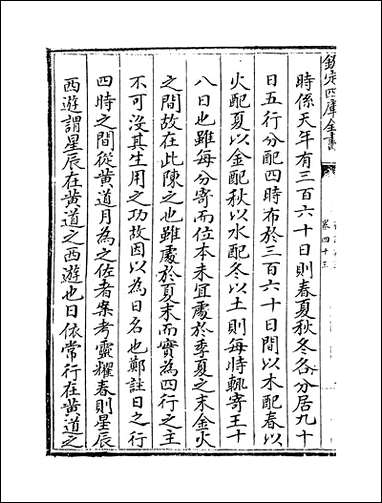 欽定四庫全書
卷四十三
時係天年有三百六十日則春夏秋冬各分居九十
日五行分配四時布於三百六十日間以木配春以
火配夏以金配秋以水配冬以土則每時輒寄王十
八日也雖每分寄而位本未宜處於季夏之末金火
之間故在此陳之也雖處於夏末而實為四行之主
不可沒其生用之功故因以為日名也鄭註日之行
四時之間從黃道月為之佐者案考靈耀春則星辰
西遊謂星辰在黃道之西遊也日依常行在黃道之